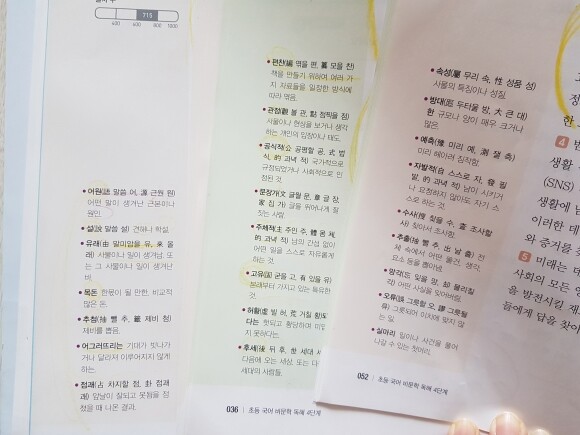 715
400 600 800 1000
•어원(語 말씀 어, 源 근원 원)
어떤 말이 생겨난 근본이나
원인.
•설(說 말씀 설) 견해나 학설.
•유래(由 말미암을 유, 來 올
래) 사물이나 일이 생겨남. 또
는 그 사물이나 일이 생겨난
바.
•목돈 한몫이 될 만한, 비교적
많은 돈.
•추첨(抽 뺄 추, 籤 제비 첨)
제비를 뽑음.
•어그러뜨리는 기대가 빗나가
거나 달라져 이루어지지 않게
하는.
•점괘(占 차지할 점, 卦 점괘
괘) 앞날이 잘되고 못됨을 점
쳤을 때 나온 결과.
•편찬(編 엮을 편, 纂 모을 찬)
책을 만들기 위하여 여러 가
지 자료들을 일정한 방식에
따라 엮음.
•관점(觀 볼 관, 點 점찍을 점)
사물이나 현상을 보거나 생각
하는 개인의 입장이나 태도.
•공식적(公 공평할 공, 式 법
식, 的 과녁 적) 국가적으로
규정되었거나 사회적으로 인
정된 것.
•문장가(文 글월 문, 章 글 장,
家 집 가) 글을 뛰어나게 잘
짓는 사람.
•주체적(主 주인 주, 體 몸 체,
的 과녁 적) 남의 간섭 없이
어떤 일을 스스로 자유롭게
하는 것.
•고유(固 굳을 고, 有 있을 유)
본래부터 가지고 있는 특유한
것.
•허황(虛 빌 허, 荒 거칠 황)되
다는 헛되고 황당하여 미덥
지 못하다는.
•후세(後 뒤 후, 世 세대 세)
다음에 오는 세상. 또는 다음
세대의 사람들.
036 초등 국어 비문학 독해 4단계
•속성(屬 무리 속, 性 성품 성)
사물의 특징이나 성질.
•방대(厖 두터울 방, 大 큰 대)
한 규모나 양이 매우 크거나
많은.
•예측(豫 미리 예, 測 잴 측)
미리 헤아려 짐작함.
•자발적(自 스스로 자, 發 필
발, 的 과녁 적) 남이 시키거
나 요청하지 않아도 자기 스
스로 하는 것.
•수사(搜 찾을 수, 査 조사할
사) 찾아서 조사함.
•추출(抽 뺄 추, 出 날 출) 전
체 속에서 어떤 물건, 생각,
요소 등을 뽑아냄.
•망각(忘 잊을 망, 却 물리칠
각) 어떤 사실을 잊어버림.
•오류(誤 그릇할 오, 謬 그릇될
유) 그릇되어 이치에 맞지 않
는 일.
•실마리 일이나 사건을 풀어
나갈 수 있는 첫머리.
052 초등 국어 비문학 독해 4단계
정
한 그
4
생활
(SNS)
생활에 남
이러한 데
와 증거를 찾
5 미래는 데
사회의 모든 영
을 발전시킬 재
들에게 답을 찾아